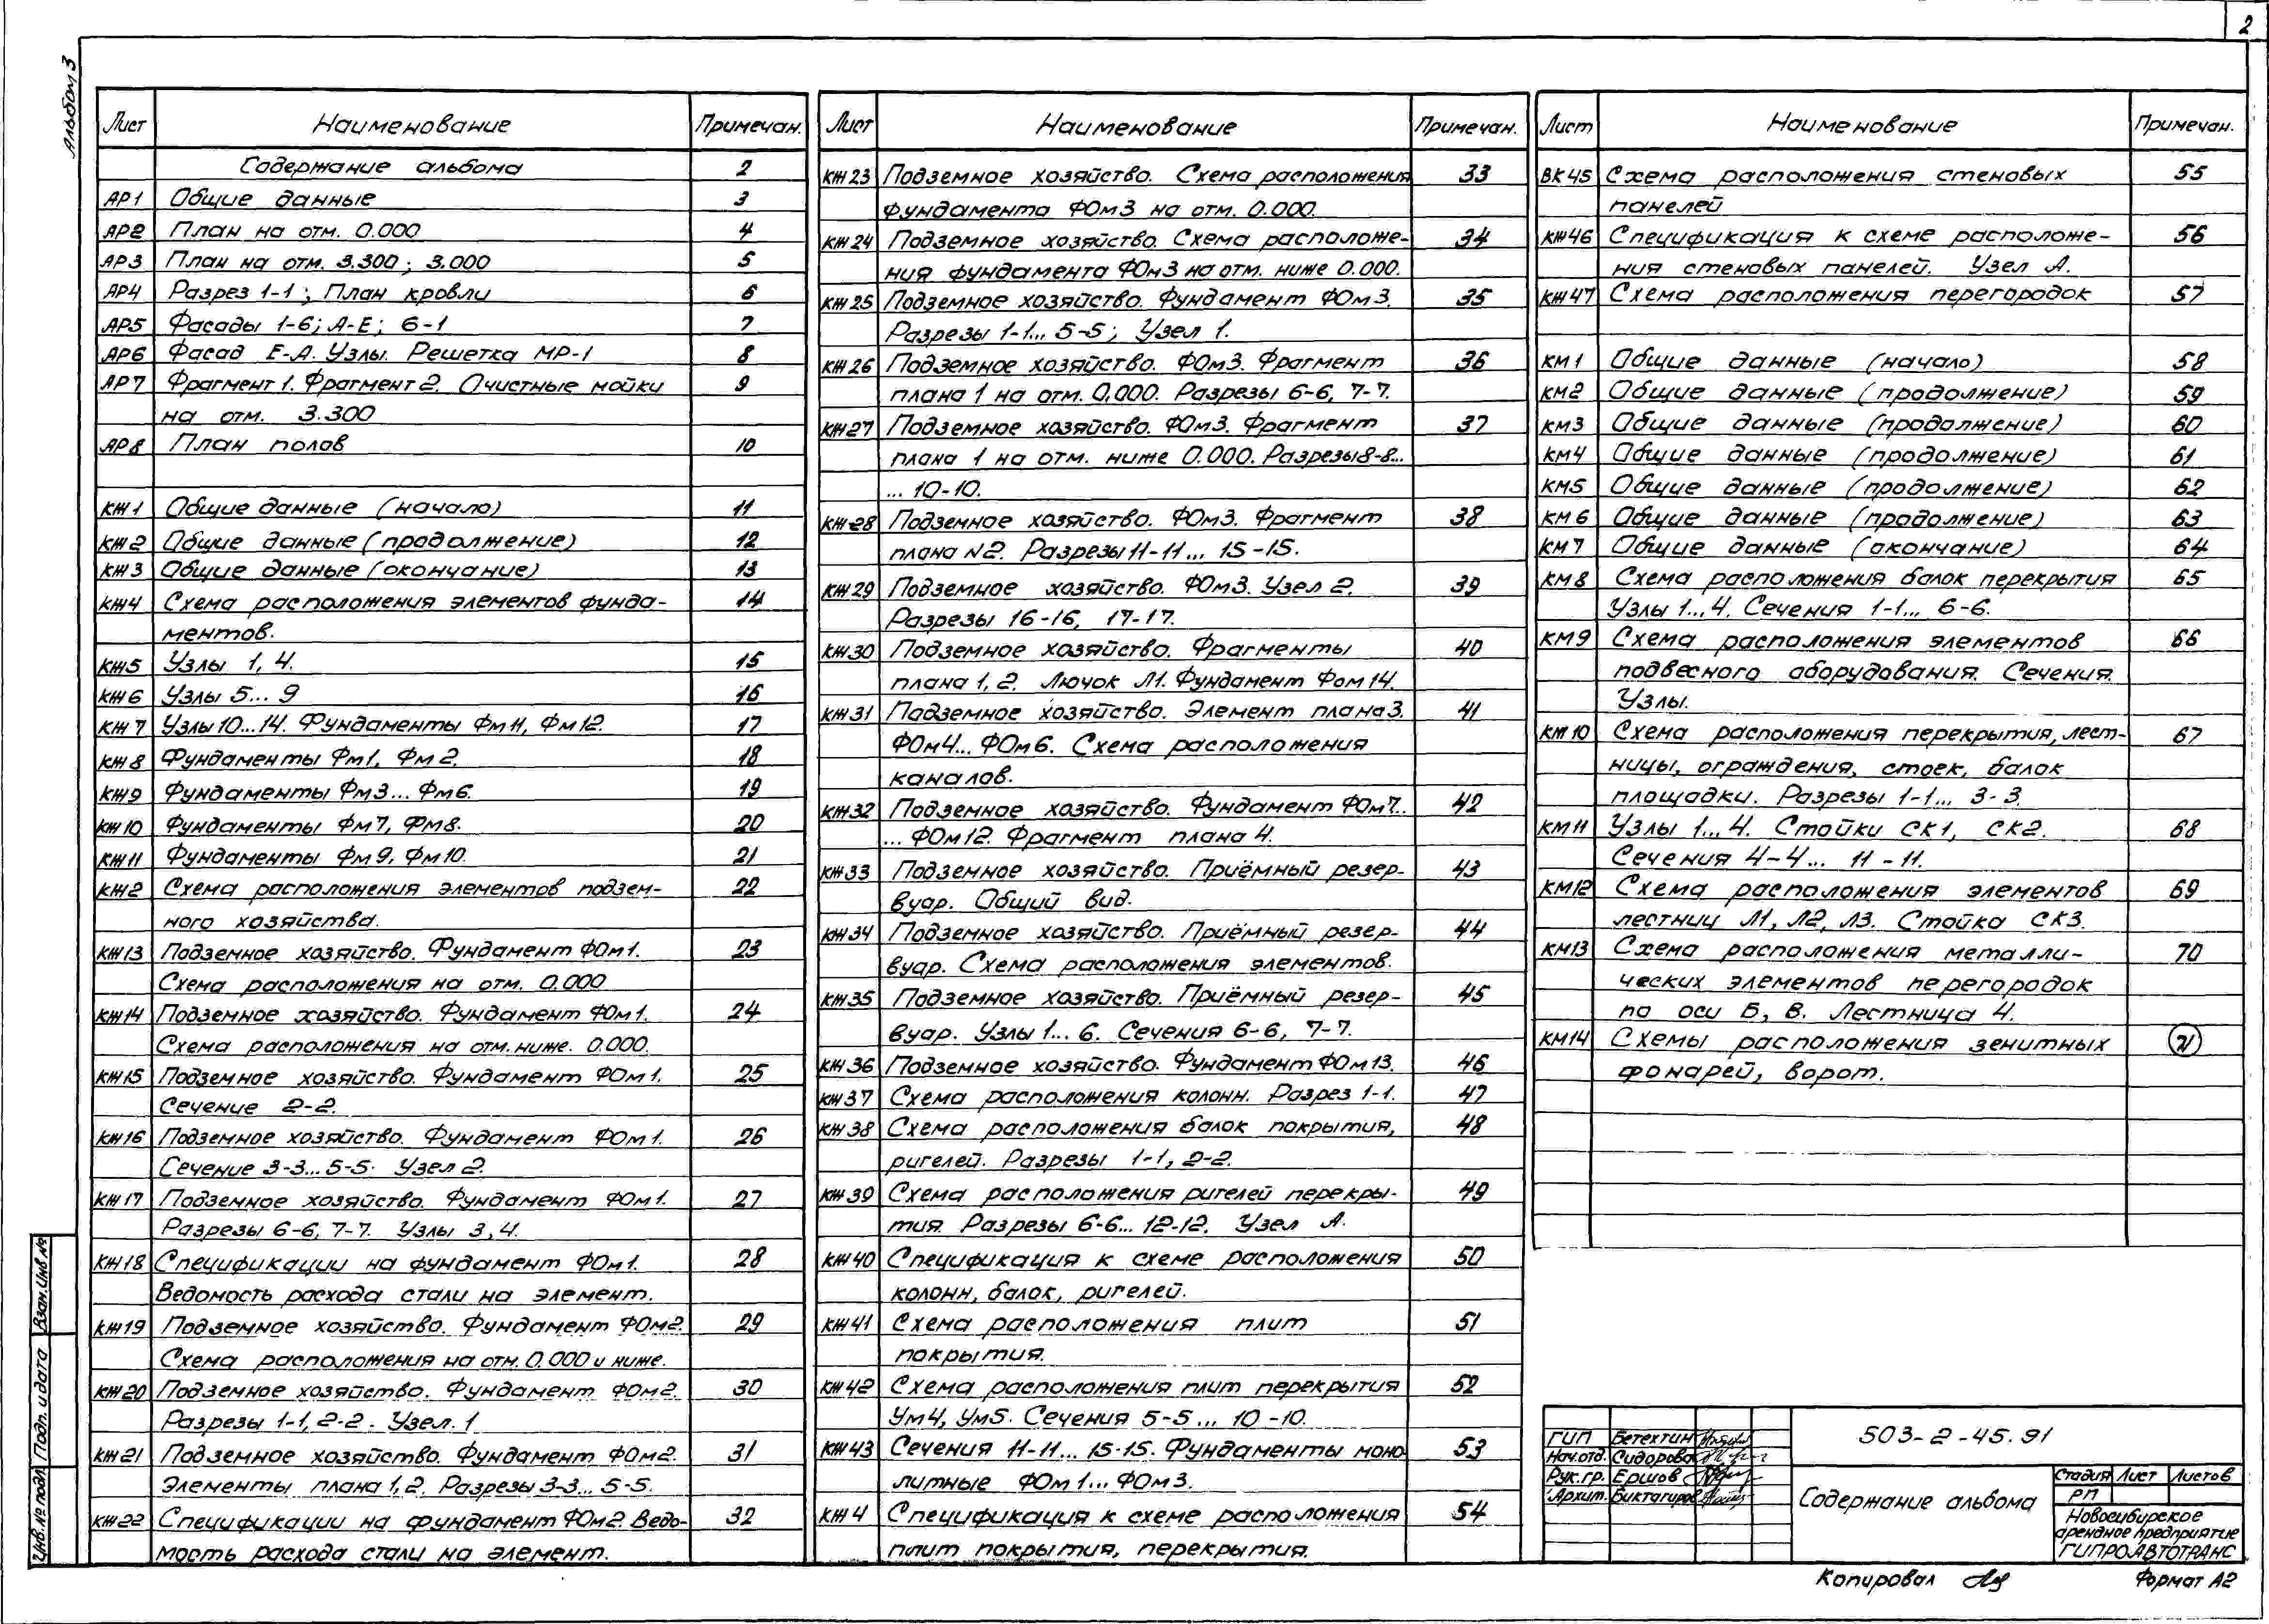 2
Альбом 3
Лист Наименование Примечан.
Содержание альбома 2
АР1 Общие данные 3
АР2 План на отм. 0.000 4
АР3 План на отм. 3.300; 3.000 5
АР4 Разрез 1-1; План кровли 6
АР5 Фасады 1-6; А-Е; 6-1 7
АР6 Фасад Е-А. Узлы. Решетка МР-1 8
АР7 Фрагмент 1. Фрагмент 2. Очистные мойки 9
на отм. 3.300
АР8 План полов 10
КЖ1 Общие данные (начало) 11
КЖ2 Общие данные (продолжение) 12
КЖ3 Общие данные (окончание) 13
КЖ4 Схема расположения элементов фунда- 14
ментов.
КЖ5 Узлы 1, 4. 15
КЖ6 Узлы 5... 9 16
КЖ7 Узлы 10...14. Фундаменты Фм11, Фм12. 17
КЖ8 Фундаменты Фм1, Фм2. 18
КЖ9 Фундаменты Фм3... Фм6. 19
КЖ10 Фундаменты Фм7, Фм8. 20
КЖ11 Фундаменты Фм9, Фм10. 21
КЖ2 Схема расположения элементов подзем- 22
ного хозяйства.
КЖ13 Подземное хозяйство. Фундамент ФОм1. 23
Схема расположения на отм. 0.000
КЖ14 Подземное хозяйство. Фундамент ФОм1. 24
Схема расположения на отм. ниже. 0.000.
КЖ15 Подземное хозяйство. Фундамент ФОм1. 25
Сечение 2-2.
КЖ16 Подземное хозяйство. Фундамент ФОм1. 26
Сечение 3-3... 5-5. Узел 2.
КЖ17 Подземное хозяйство. Фундамент ФОм1. 27
Разрезы 6-6, 7-7. Узлы 3, 4.
КЖ18 Спецификации на фундамент ФОм1. 28
Ведомость расхода стали на элемент.
КЖ19 Подземное хозяйство. Фундамент ФОм2. 29
Схема расположения на отм. 0.000 и ниже.
КЖ20 Подземное хозяйство. Фундамент ФОм2. 30
Разрезы 1-1, 2-2. Узел. 1
КЖ21 Подземное хозяйство. Фундамент ФОм2. 31
Элементы плана 1, 2. Разрезы 3-3... 5-5.
КЖ22 Спецификации на фундамент ФОм2. Ведо- 32
мость расхода стали на элемент.
Лист Наименование Примечан.
КЖ23 Подземное хозяйство. Схема расположения 33
фундамента ФОм3 на отм. 0.000.
КЖ24 Подземное хозяйство. Схема расположе- 34
ния фундамента ФОм3 на отм. ниже 0.000.
КЖ25 Подземное хозяйство. Фундамент ФОм3. 35
Разрезы 1-1... 5-5; Узел 1.
КЖ26 Подземное хозяйство. ФОм3. Фрагмент 36
плана 1 на отм. 0,000. Разрезы 6-6, 7-7.
КЖ27 Подземное хозяйство. ФОм3. Фрагмент 37
плана 1 на отм. ниже 0.000. Разрезы 8-8...
... 10-10.
КЖ28 Подземное хозяйство. ФОм3. Фрагмент 38
плана N2. Разрезы 11-11... 15-15.
КЖ29 Подземное хозяйство. ФОм3. Узел 2. 39
Разрезы 16-16, 17-17.
КЖ30 Подземное хозяйство. Фрагменты 40
плана 1, 2. Лючок Л1. Фундамент Фом14.
КЖ31 Подземное хозяйство. Элемент плана 3. 41
ФОм4... ФОм6. Схема расположения
каналов.
КЖ32 Подземное хозяйство. Фундамент ФОм7.. 42
... ФОм12. Фрагмент плана 4.
КЖ33 Подземное хозяйство. Приёмный резер- 43
вуар. Общий вид.
КЖ34 Подземное хозяйство. Приёмный резер- 44
вуар. Схема расположения элементов.
КЖ35 Подземное хозяйство. Приёмный резер- 45
вуар. Узлы 1... 6. Сечения 6-6, 7-7.
КЖ36 Подземное хозяйство. Фундамент ФОм13. 46
КЖ37 Схема расположения колонн. Разрез 1-1. 47
КЖ38 Схема расположения балок покрытия, 48
ригелей. Разрезы 1-1, 2-2.
КЖ39 Схема расположения ригелей перекры- 49
тия. Разрезы 6-6... 12-12. Узел А.
КЖ40 Спецификация к схеме расположения 50
колонн, балок, ригелей.
КЖ41 Схема расположения плит 51
покрытия.
КЖ42 Схема расположения плит перекрытия 52
Ум4, Ум5. Сечения 5-5... 10-10.
КЖ43 Сечения 11-11... 15-15. Фундаменты моно- 53
литные ФОм1... ФОм3.
КЖ4 Спецификация к схеме расположения 54
плит покрытия, перекрытия.
Лист Наименование Примечан.
ВК45 Схема расположения стеновых 55
панелей
КЖ46 Спецификация к схеме расположе- 56
ния стеновых панелей. Узел А.
КЖ47 Схема расположения перегородок 57
КМ1 Общие данные (начало) 58
КМ2 Общие данные (продолжение) 59
КМ3 Общие данные (продолжение) 60
КМ4 Общие данные (продолжение) 61
КМ5 Общие данные (продолжение) 62
КМ6 Общие данные (продолжение) 63
КМ7 Общие данные (окончание) 64
КМ8 Схема расположения балок перекрытия 65
Узлы 1...4. Сечения 1-1... 6-6.
КМ9 Схема расположения элементов 66
подвесного оборудования. Сечения.
Узлы.
КМ10 Схема расположения перекрытия, лест- 67
ницы, ограждения, стоек, балок
площадки. Разрезы 1-1... 3-3.
КМ11 Узлы 1...4. Стойки СК1, СК2. 68
Сечения 4-4... 11-11.
КМ12 Схема расположения элементов 69
лестниц Л1, Л2, Л3. Стойка СК3.
КМ13 Схема расположения металли- 70
ческих элементов перегородок
по оси Б, В. Лестница 4.
КМ14 Схемы расположения зенитных 71
фонарей, ворот.
Взам. инв №
Подп. и дата
Инв. № подл
ГИП Бетехтин
Нач.отд. Сидорова
Рук.гр. Ершов
Архит. Биктагиров
503-2-45.91
Содержание альбома
Стадия Лист Листов
РП
Новосибирское
арендное предприятие
ГИПРОАВТОТРАНС
Копировал
Формат А2